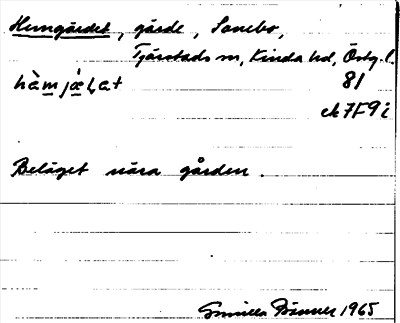 Hemgärdet, gärde, Sonebo,
Tjärstads sn, Kinda hd, Östg. l.
hàmjæ̀ɭat 81
ek 7F9i
Beläget nära gården.
Gunilla 1965